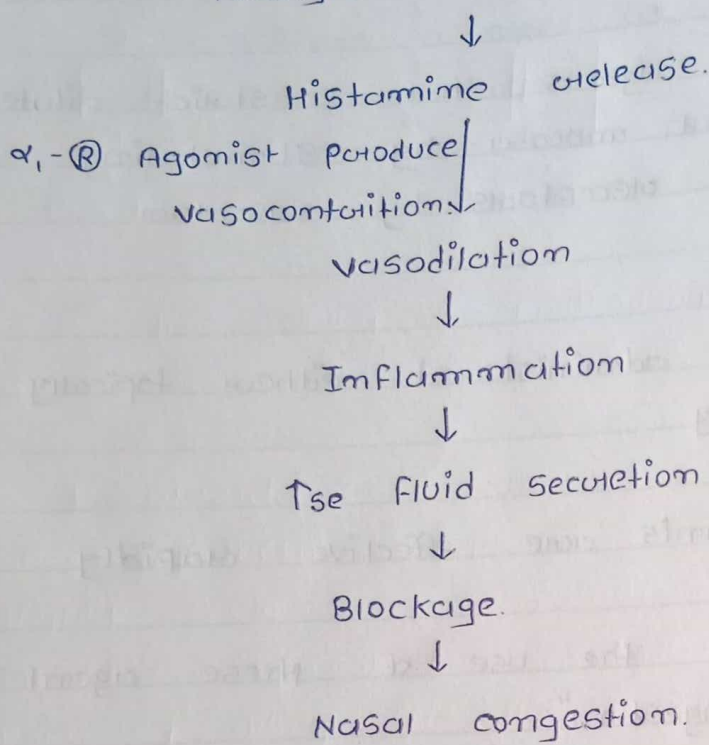 ↓
Histamine release.
α₁-Ⓡ Agonist produce
vasocontrition. ↓
vasodilation
↓
Inflammation
↓
↑se fluid secretion
↓
Blockage.
↓
Nasal congestion.